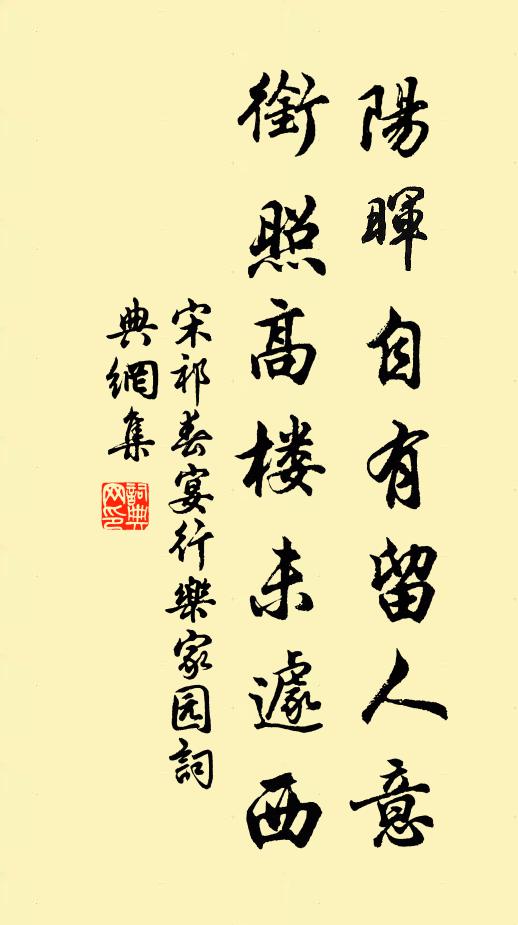 陽暉自有留人意
銜照高楼未遽西
宋祁春宴行樂家园詞
典網集
詞典網印